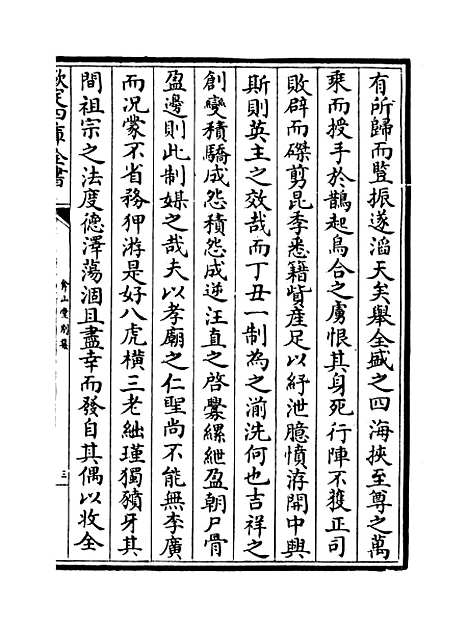 有所歸而監振遂滔天矣舉全盛之四海挾至尊之萬
乘而授手於鵲起烏合之虜恨其身死行陣不獲正司
敗辟而磔剪昆季悉籍貲産足以紓泄臆憤洊開中興
斯則英主之效哉而丁丑一制為之湔洗何也吉祥之
創變積驕成怨積怨成逆汪直之啓釁縲紲盈朝尸骨
盈邊則此制媒之哉夫以孝廟之仁聖尚不能無李廣
而况蒙不省務狎游是好八虎橫三老絀瑾獨豶牙其
間祖宗之法度德澤蕩涸且盡幸而發自其偶以收全
欽定四庫全書
弇山堂别集
三